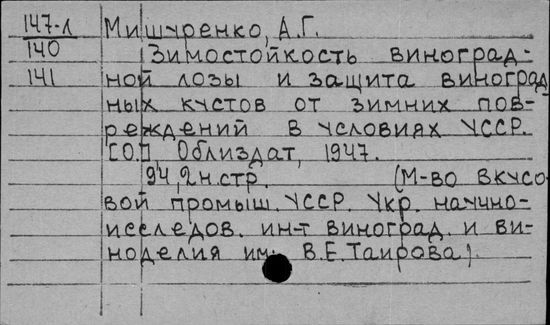 147-л Мишуренко, А.Г.
140 Зимостойкость виноград-
141 ной лозы и защита виноград
ных кустов от зимних пов-
реждений в условиях УССР.
[О.], Облиздат, 1947.
94,2 н.стр. (М-во вкусо
вой промыш. УССР. Укр. научно-
исследов. ин-т виноград. и ви-
ноделия им. В.Е.Таирова).